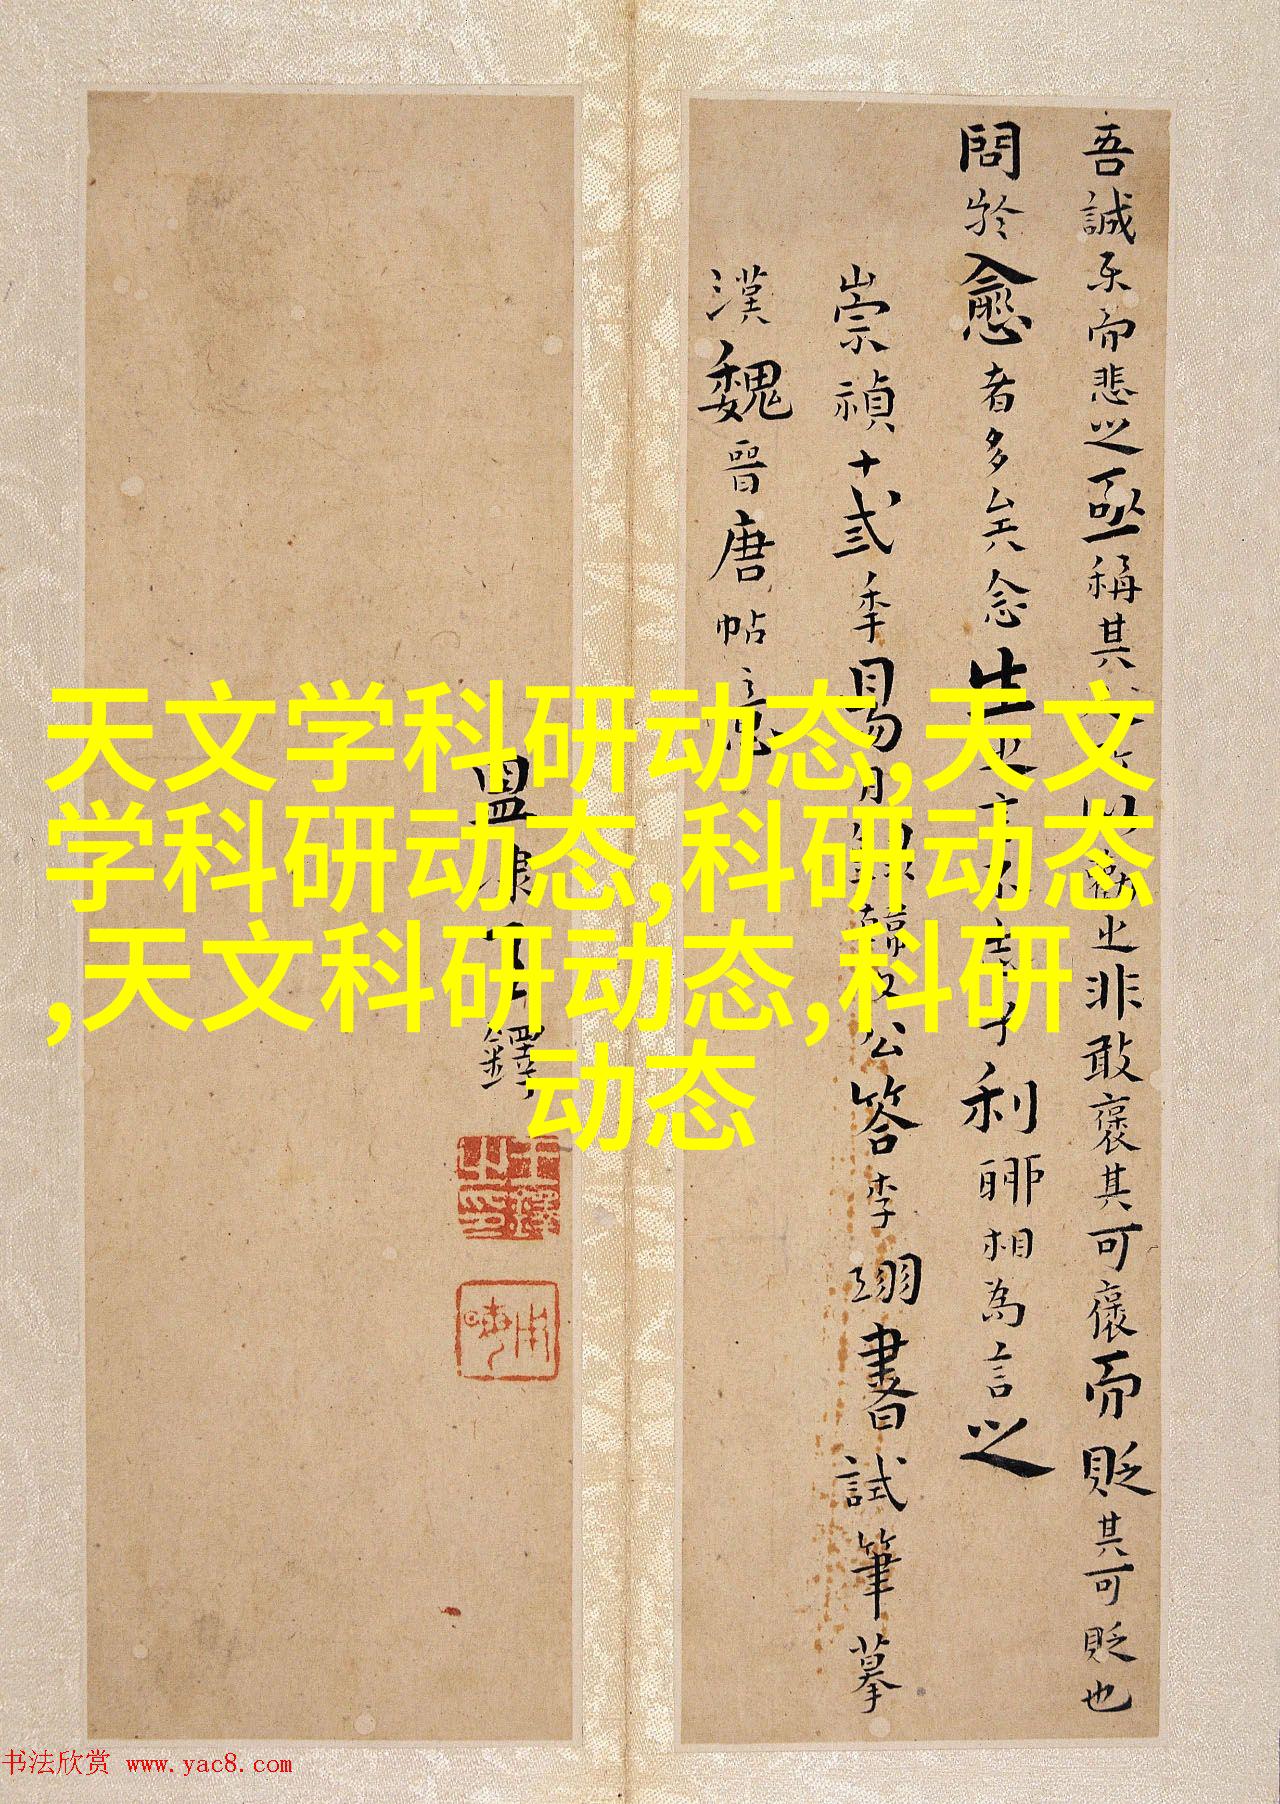 吾誠樂而悲之亟稱其以勸之非敢褒其可褒而貶其可貶也
問於愈者多矣念生之言不志乎利聊相為言之
崇禎十弍季易月韓文公答李翊書試筆摹
漢魏晉唐帖意
鐸
王鐸之印
天文学科研动态,天文
学科研动态,科研动态
,天文科研动态,科研
动态
书法欣赏 www.yac8.com